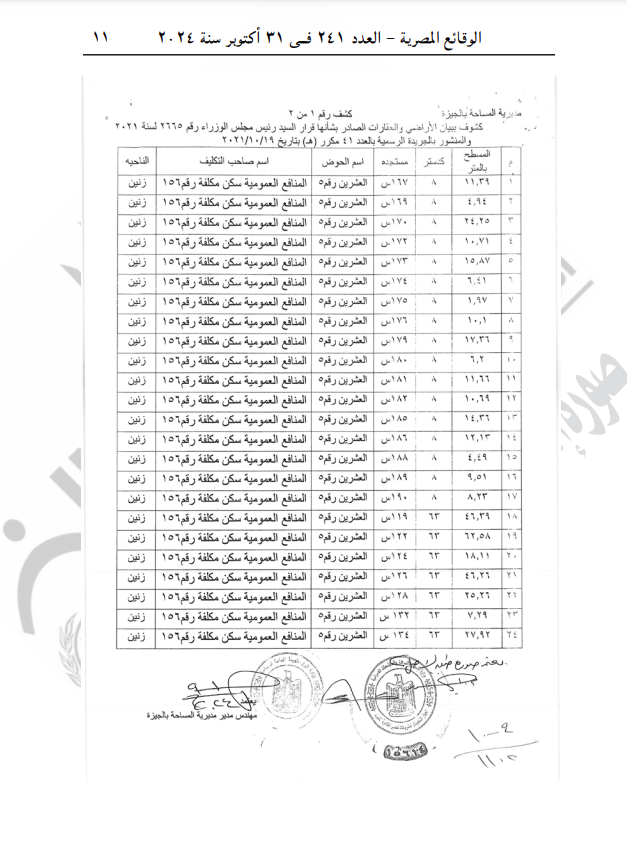 الوقائع المصرية – العدد ٢٤١ فى ٣١ أكتوبر سنة ٢٠٢٤ ١١
مديرية المساحة بالجيزة كشف رقم ١ من ٢
كشوف ببيان الأراضي والعقارات الصادر بشأنها قرار السيد رئيس مجلس الوزراء رقم ٢٦٦٥ لسنة ٢٠٢١
والمنشور بالجريدة الرسمية بالعدد ٤١ مكرر (هـ) بتاريخ ٢٠٢١/١٠/١٩
م المسطح بالمتر كدستر مستجده اسم الحوض اسم صاحب التكليف الناحيه
١ ١١,٣٩ ٨ ١٦٧س العشرين رقم٥ المنافع العمومية سكن مكلفة رقم١٥٦ زنين
٢ ٤,٩٤ ٨ ١٦٩س العشرين رقم٥ المنافع العمومية سكن مكلفة رقم١٥٦ زنين
٣ ٢٤,٢٥ ٨ ١٧٠س العشرين رقم٥ المنافع العمومية سكن مكلفة رقم١٥٦ زنين
٤ ١٠,٧١ ٨ ١٧٢س العشرين رقم٥ المنافع العمومية سكن مكلفة رقم١٥٦ زنين
٥ ١٥,٨٧ ٨ ١٧٣س العشرين رقم٥ المنافع العمومية سكن مكلفة رقم١٥٦ زنين
٦ ٦,٤١ ٨ ١٧٤س العشرين رقم٥ المنافع العمومية سكن مكلفة رقم١٥٦ زنين
٧ ١,٩٧ ٨ ١٧٥س العشرين رقم٥ المنافع العمومية سكن مكلفة رقم١٥٦ زنين
٨ ١٠,١ ٨ ١٧٦س العشرين رقم٥ المنافع العمومية سكن مكلفة رقم١٥٦ زنين
٩ ١٧,٣٦ ٨ ١٧٩س العشرين رقم٥ المنافع العمومية سكن مكلفة رقم١٥٦ زنين
١٠ ٦,٢ ٨ ١٨٠س العشرين رقم٥ المنافع العمومية سكن مكلفة رقم١٥٦ زنين
١١ ١١,٦٦ ٨ ١٨١س العشرين رقم٥ المنافع العمومية سكن مكلفة رقم١٥٦ زنين
١٢ ١٠,٦٩ ٨ ١٨٢س العشرين رقم٥ المنافع العمومية سكن مكلفة رقم١٥٦ زنين
١٣ ١٤,٣٦ ٨ ١٨٥س العشرين رقم٥ المنافع العمومية سكن مكلفة رقم١٥٦ زنين
١٤ ١٢,١٣ ٨ ١٨٦س العشرين رقم٥ المنافع العمومية سكن مكلفة رقم١٥٦ زنين
١٥ ٤,٤٩ ٨ ١٨٨س العشرين رقم٥ المنافع العمومية سكن مكلفة رقم١٥٦ زنين
١٦ ٩,٥١ ٨ ١٨٩س العشرين رقم٥ المنافع العمومية سكن مكلفة رقم١٥٦ زنين
١٧ ٨,٢٣ ٨ ١٩٠س العشرين رقم٥ المنافع العمومية سكن مكلفة رقم١٥٦ زنين
١٨ ٤٦,٣٩ ٦٣ ١١٩س العشرين رقم٥ المنافع العمومية سكن مكلفة رقم١٥٦ زنين
١٩ ٦٢,٥٨ ٦٣ ١٢٢س العشرين رقم٥ المنافع العمومية سكن مكلفة رقم١٥٦ زنين
٢٠ ١٨,١١ ٦٣ ١٢٤س العشرين رقم٥ المنافع العمومية سكن مكلفة رقم١٥٦ زنين
٢١ ٤٦,٢٦ ٦٣ ١٢٦س العشرين رقم٥ المنافع العمومية سكن مكلفة رقم١٥٦ زنين
٢٢ ٢٥,٢٦ ٦٣ ١٢٨س العشرين رقم٥ المنافع العمومية سكن مكلفة رقم١٥٦ زنين
٢٣ ٧,٢٩ ٦٣ ١٣٢ س العشرين رقم٥ المنافع العمومية سكن مكلفة رقم١٥٦ زنين
٢٤ ٢٧,٩٢ ٦٣ ١٣٤ س العشرين رقم٥ المنافع العمومية سكن مكلفة رقم١٥٦ زنين
يعتمد
مهندس مدير مديرية المساحة بالجيزة